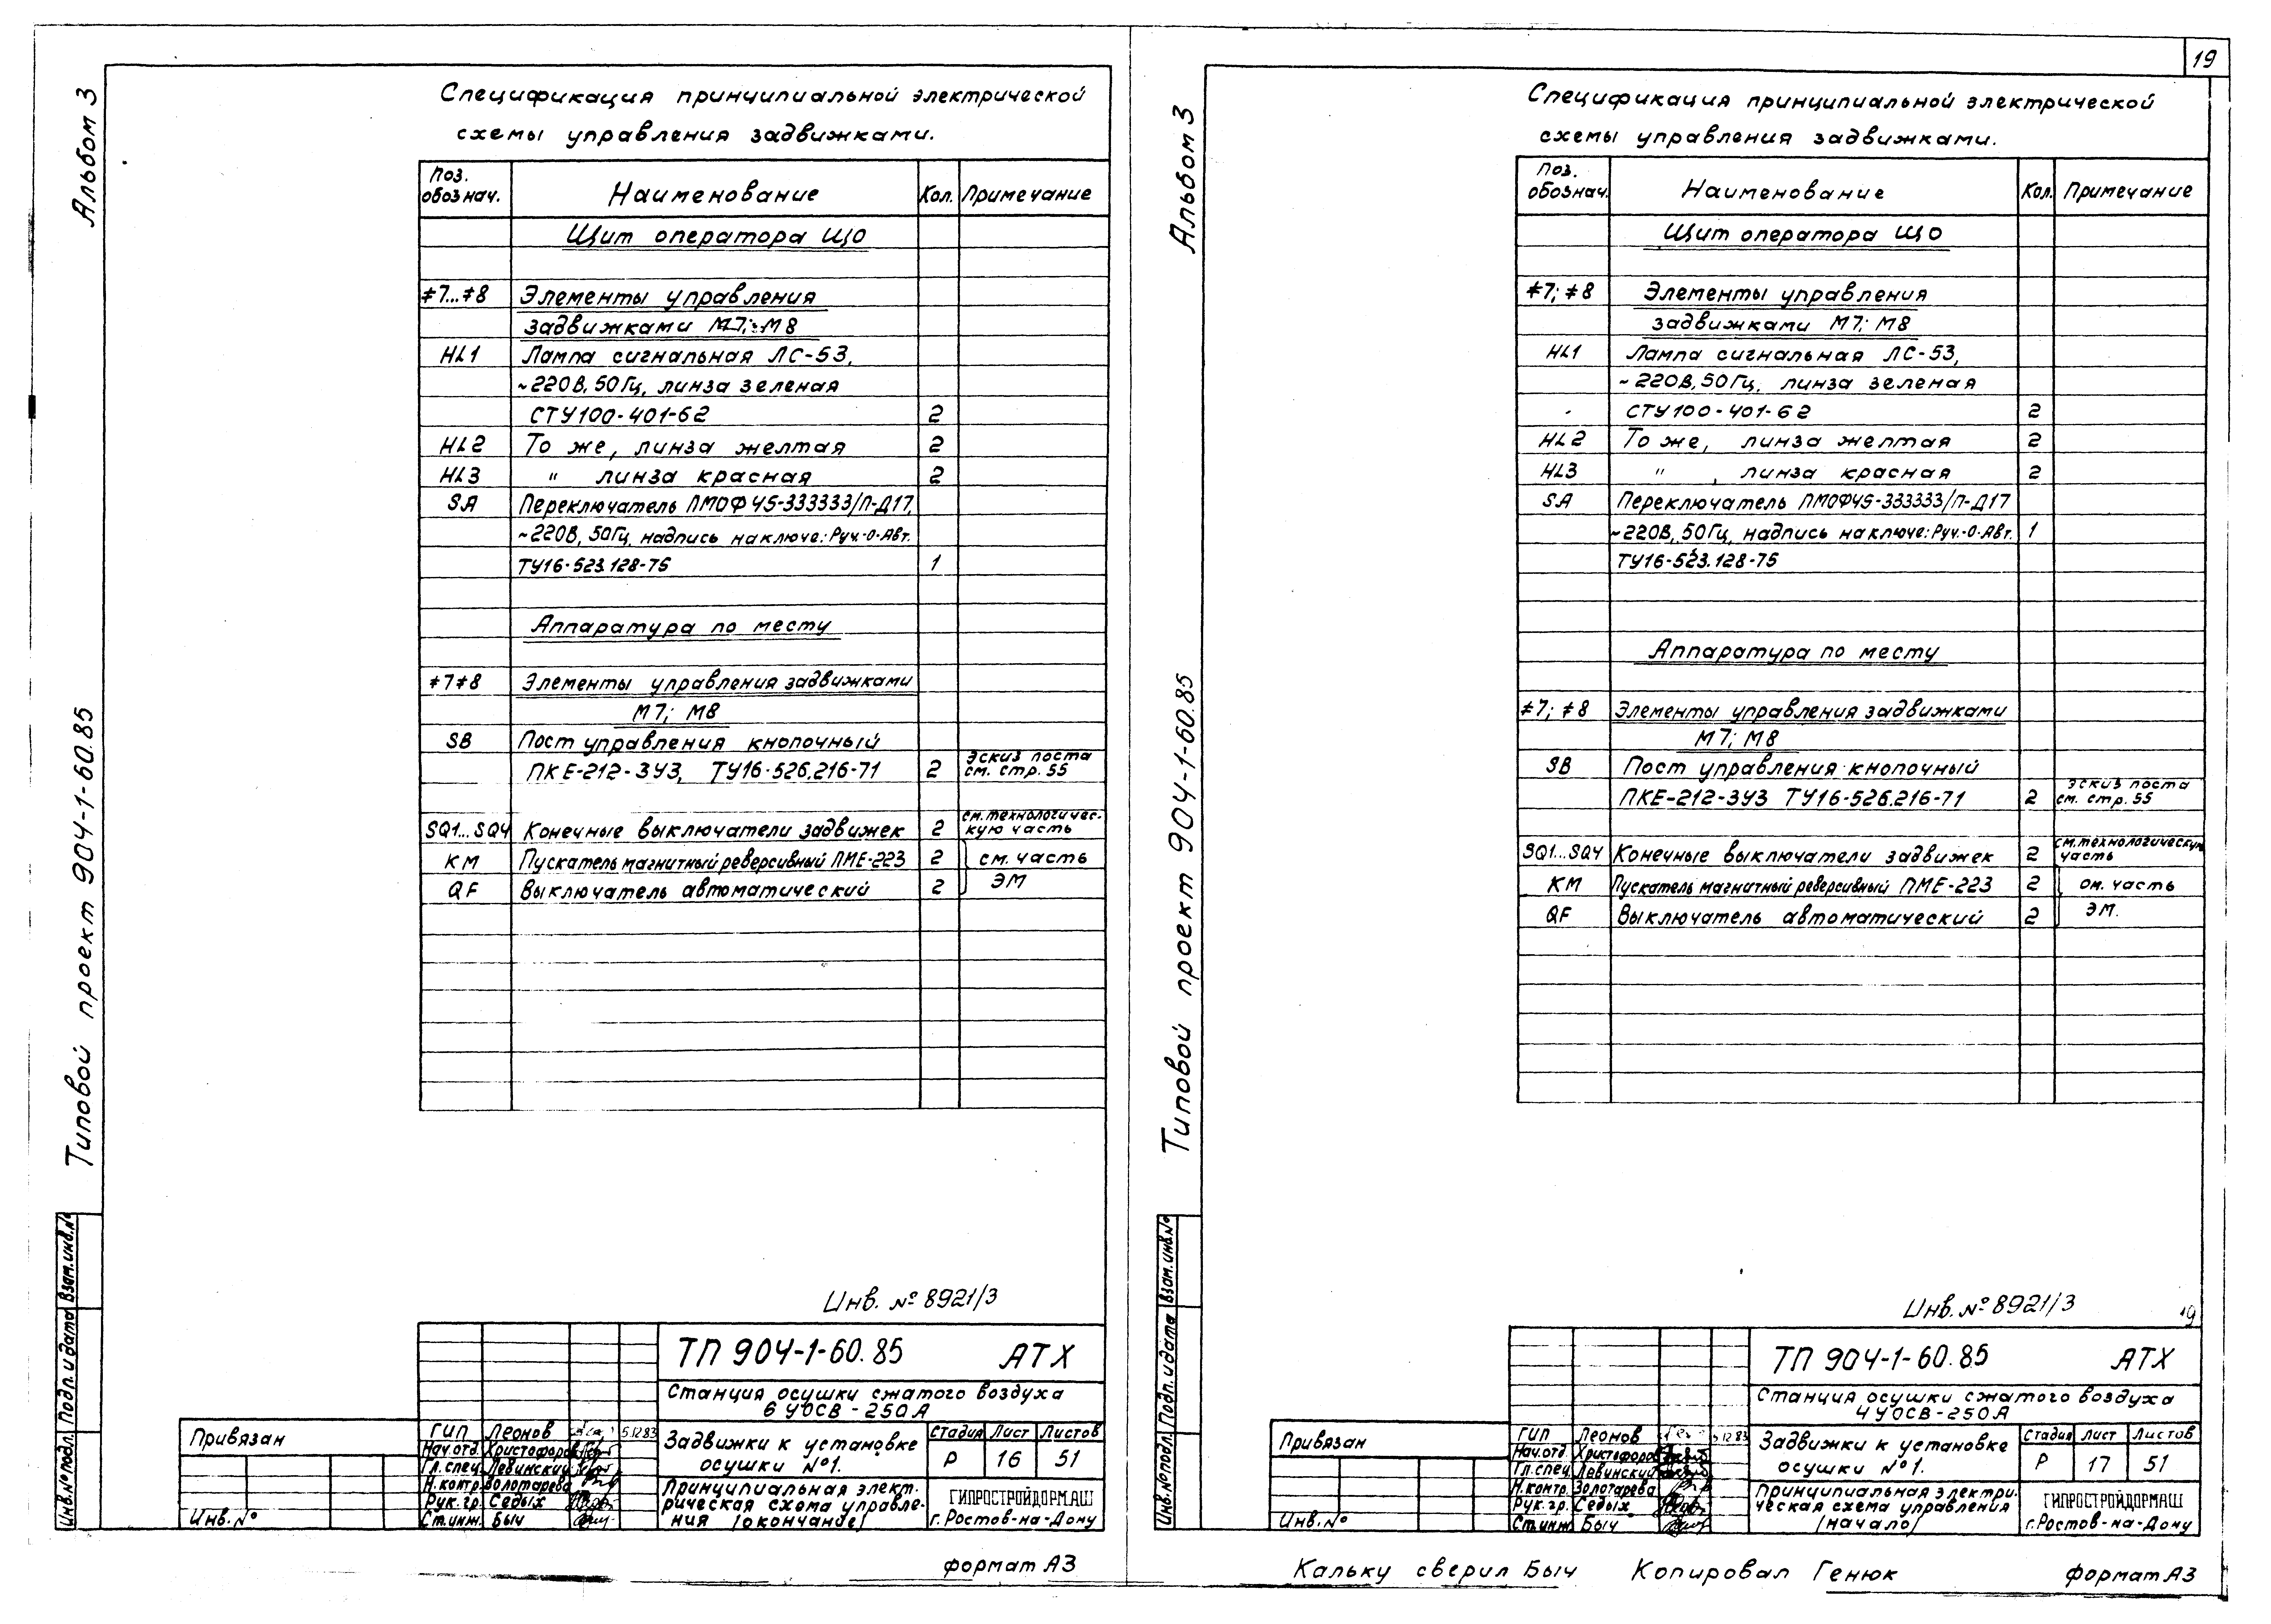 Альбом 3
Типовой проект 904-1-60.85
Инв.№ подл. Подп. и дата Взам.инв.№
Спецификация принципиальной электрической
схемы управления задвижками.
Поз. обознач. Наименование Кол. Примечание
Щит оператора ЩО
≠7...≠8 Элементы управления
задвижками М7; М8
HL1 Лампа сигнальная ЛС-53,
~220В, 50Гц, линза зеленая
СТУ100-401-62 2
HL2 То же, линза желтая 2
HL3 " линза красная 2
SA Переключатель ПМОФ45-333333/П-Д17,
~220В, 50Гц, надпись на ключе: Руч.-О-Авт.
ТУ16-523.128-75 1
Аппаратура по месту
≠7≠8 Элементы управления задвижками
М7; М8
SB Пост управления кнопочный
ПКЕ-212-3У3, ТУ16-526.216-71 2 Эскиз поста см. стр. 55
SQ1...SQ4 Конечные выключатели задвижек 2 см. технологичес-кую часть
КМ Пускатель магнитный реверсивный ПМЕ-223 2 см. часть
QF Выключатель автоматический 2 ЭМ
Инв. № 8921/3
ТП 904-1-60.85 АТХ
Станция осушки сжатого воздуха
6 УОСВ-250А
Привязан
Инв.№
ГИП Леонов 5.12.83
Нач.отд. Христофоров
Гл.спец. Левинский
Н.контр. Золотарева
Рук. гр. Седых
Ст.инж. Быч
Задвижки к установке
осушки №1.
Стадия Лист Листов
Р 16 51
Принципиальная элект-
рическая схема управле-
ния (окончание)
ГИПРОСТРОЙДОРМАШ
г. Ростов-на-Дону
формат А3
19
Альбом 3
Типовой проект 904-1-60.85
Инв.№ подл. Подп. и дата Взам.инв.№
Спецификация принципиальной электрической
схемы управления задвижками.
Поз. обознач. Наименование Кол. Примечание
Щит оператора ЩО
≠7; ≠8 Элементы управления
задвижками М7; М8
HL1 Лампа сигнальная ЛС-53,
~220В, 50Гц, линза зеленая
СТУ100-401-62 2
HL2 То же, линза желтая 2
HL3 " , линза красная 2
SA Переключатель ПМОФ45-333333/П-Д17
~220В, 50Гц, надпись на ключе: Руч.-О-Авт. 1
ТУ16-523.128-75
Аппаратура по месту
≠7; ≠8 Элементы управления задвижками
М7; М8
SB Пост управления кнопочный
ПКЕ-212-3У3 ТУ16-526.216-71 2 Эскиз поста см. стр. 55
SQ1...SQ4 Конечные выключатели задвижек 2 см. технологическую часть
КМ Пускатель магнитный реверсивный ПМЕ-223 2 см. часть
QF Выключатель автоматический 2 ЭМ.
Инв. № 8921/3 19
ТП 904-1-60.85 АТХ
Станция осушки сжатого воздуха
4 УОСВ-250А
Привязан
Инв.№
ГИП Леонов 5.12.83
Нач.отд. Христофоров
Гл.спец. Левинский
Н.контр. Золотарева
Рук. гр. Седых
Ст.инж. Быч
Задвижки к установке
осушки №1.
Стадия Лист Листов
Р 17 51
Принципиальная электри-
ческая схема управления
(начало)
ГИПРОСТРОЙДОРМАШ
г. Ростов-на-Дону
Кальку сверил Быч Копировал Генюк формат А3